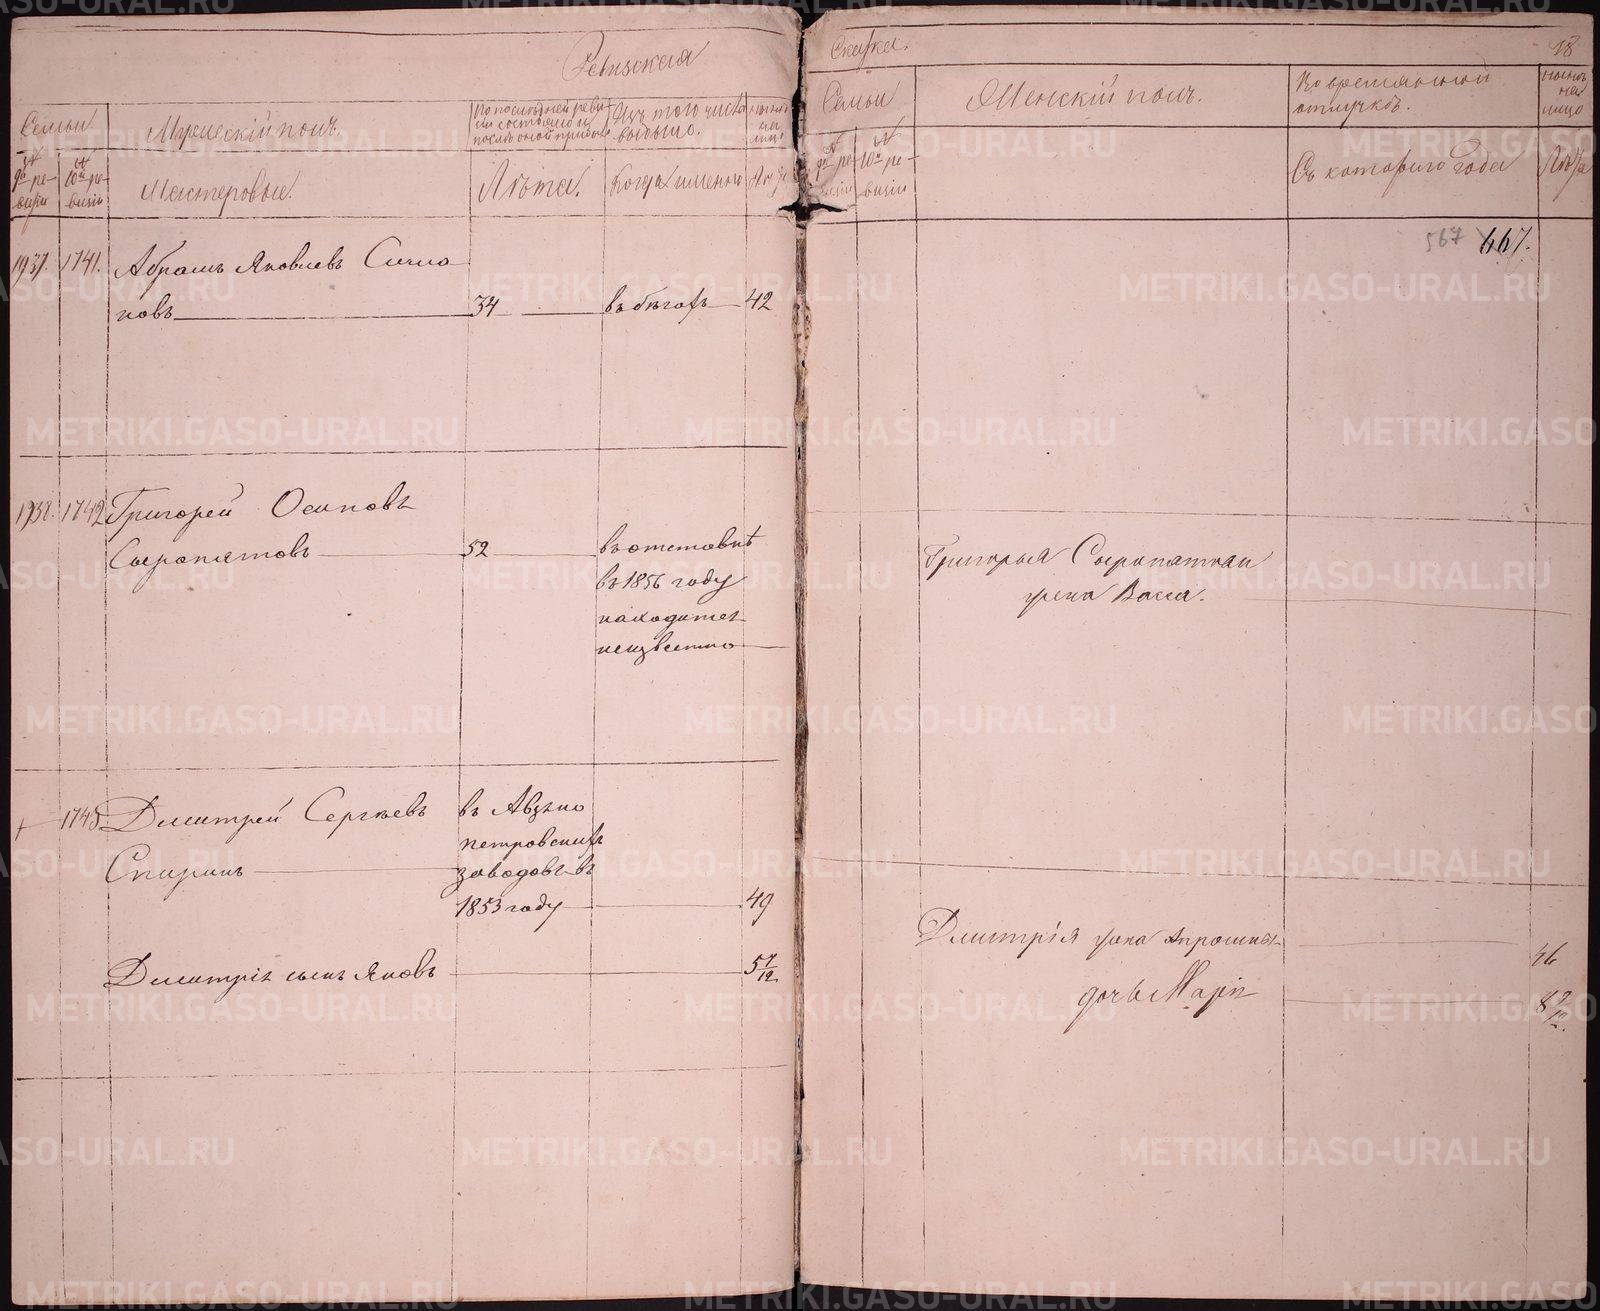 Ревизская
Семьи
Мужескій полъ.
По последней реви
зіи состояло и
после оной прибыло
Изъ того числа
выбыло.
ныне
на
лицо
№
9й ре-
визіи
№
10й ре-
визіи
Мастеровые.
Лѣта.
Когда именно
Лѣта
1937.
1741.
Абрамъ Яковлевъ
новъ
34
въ бѣгахъ
42
1938.
1742
Григорей Осиповъ
Сыропятовъ
52
въ отставкѣ
въ 1856 году
находится
неизвестно
1743
Дмитрей Сергѣевъ
Спиринъ
въ Авзяно
петровскихъ
заводовъ въ
1853 году
49
Дмитрія сынъ Яковъ
5 7/12
Сказка.
18
Семьи
Женскій полъ.
По временной
отлучкѣ.
ныне
на
лицо
№
9й ре-
визіи
№
10й ре-
визіи
Съ котораго года
Лѣта
567
667.
Григорья Сыропятова
жена Васса.
Дмитрія жена
46
дочь Марія
8 9/12
METRIKI.GASO-URAL.RU